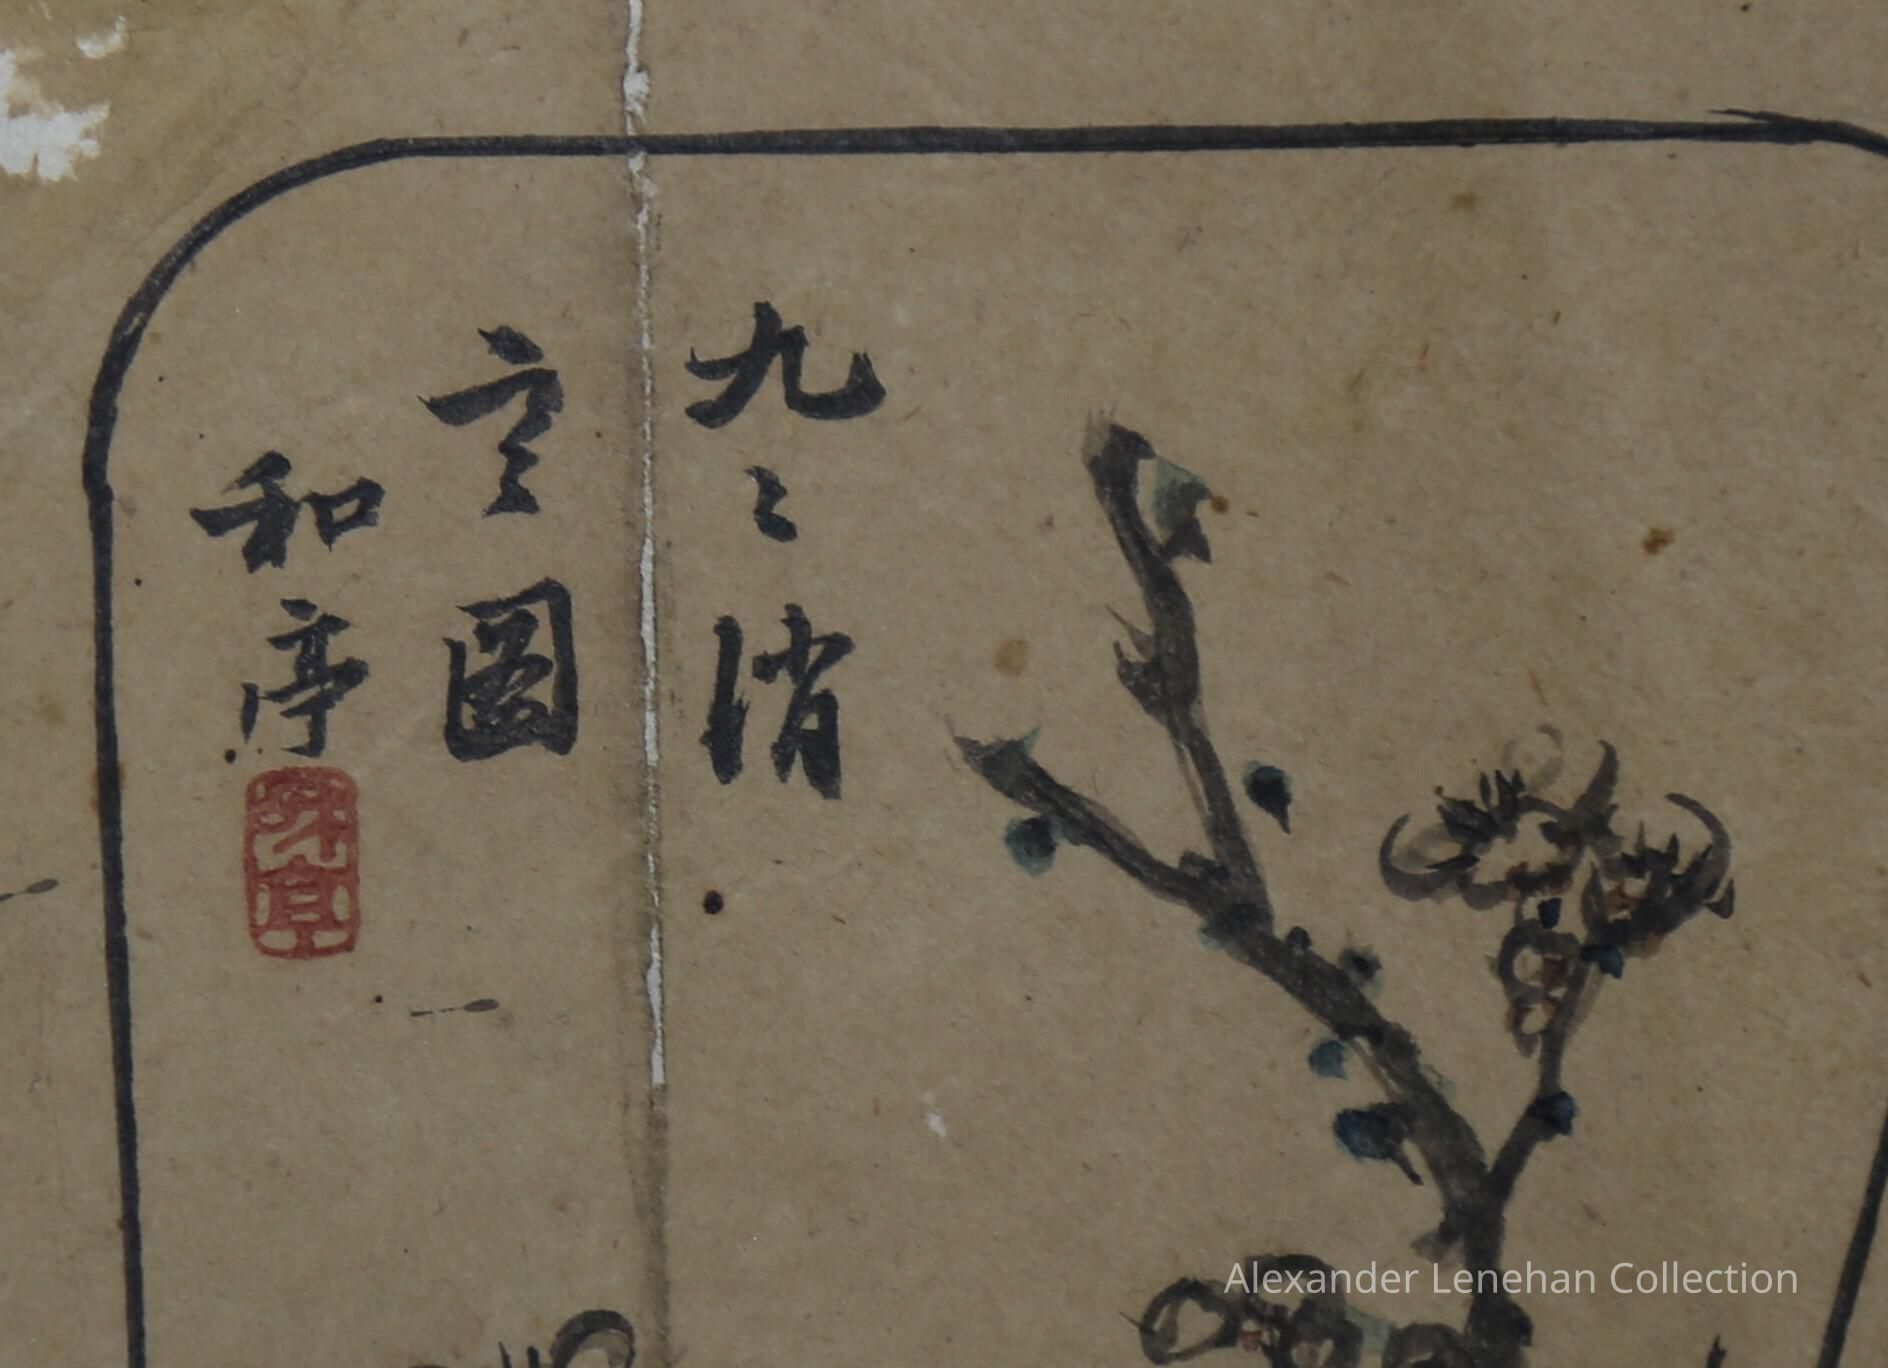 九〻消
寒圖
和亭
Alexander Lenehan Collection